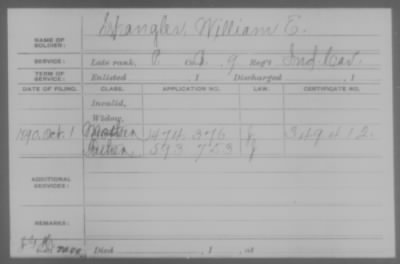 NAME OF SOLDIER: Spangler, William E.
SERVICE: Late rank, P Co. 9 Reg't Ind. Cav.
TERM OF SERVICE: Enlisted , 1 Discharged , 1
DATE OF FILING. CLASS. APPLICATION NO. LAW. CERTIFICATE NO.
Invalid,
Widow,
1890. Oct. 1 Mother 474.376 J 349.412.
593.753 J
ADDITIONAL SERVICES:
REMARKS:
Died , 1 , at